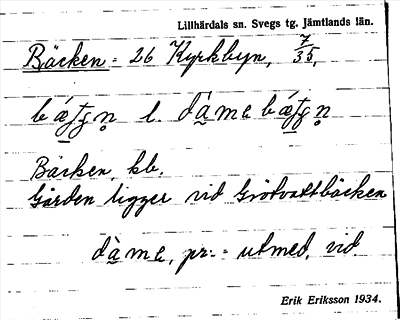 Lillhärdals sn. Svegs tg. Jämtlands län.
Bäcken = 26 Kyrkbyn, 7/35,
l. dàme
Bäcken, kb.
Gården ligger vid Grötvattbäcken
dàme, pr. = utmed, vid.
Erik Eriksson 1934.